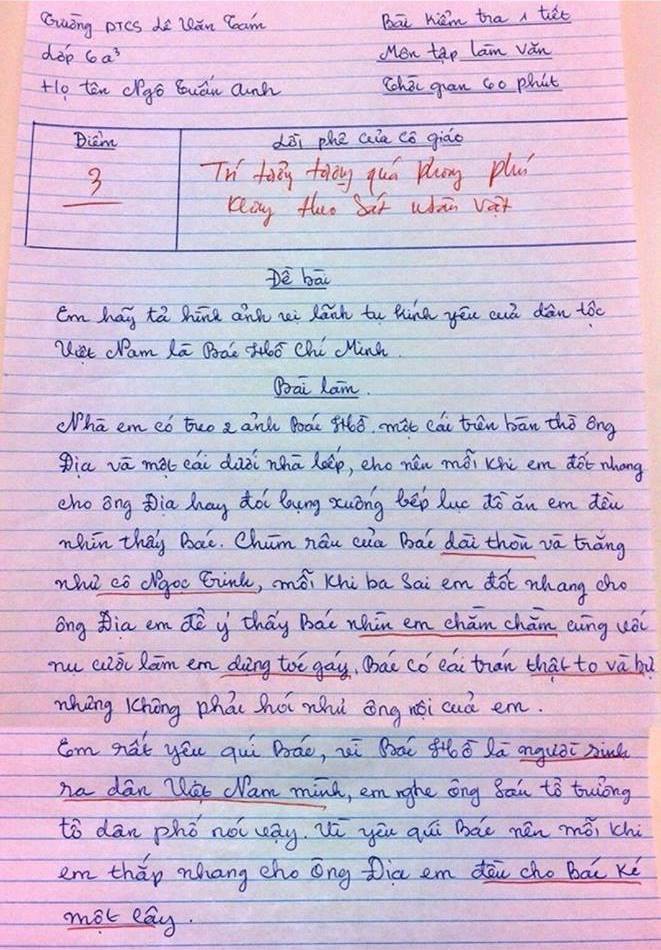 Trường PTCS Lê Văn Tám
Bài kiểm tra 1 tiết
Lớp 6a³
Môn tập làm văn
Họ tên Ngô Tuấn Anh
Thời gian 60 phút
Điểm
Lời phê của cô giáo
3
Trí tưởng tượng quá phong phú
không theo sát nhân vật
Đề bài
Em hãy tả hình ảnh vị lãnh tụ kính yêu của dân tộc
Việt Nam là Bác Hồ Chí Minh.
Bài làm.
Nhà em có treo 2 ảnh Bác Hồ, một cái trên bàn thờ ông
Địa và một cái dưới nhà bếp, cho nên mỗi khi em đốt nhang
cho ông Địa hay đói bụng xuống bếp lục đồ ăn em đều
nhìn thấy Bác. Chùm râu của Bác dài thòn và trắng
như cô Ngọc Trinh, mỗi khi ba sai em đốt nhang cho
ông Địa em để ý thấy Bác nhìn em chăm chăm cùng với
nụ cười làm em dựng tóc gáy. Bác có cái trán thật to và bự
nhưng không phải hói như ông nội của em.
Em rất yêu quí Bác, vì Bác Hồ là người sinh
ra dân Việt Nam mình, em nghe ông Sáu tổ trưởng
tổ dân phố nói vậy. Vì yêu quí Bác nên mỗi khi
em thắp nhang cho ông Địa em đều cho Bác ké
một cây.